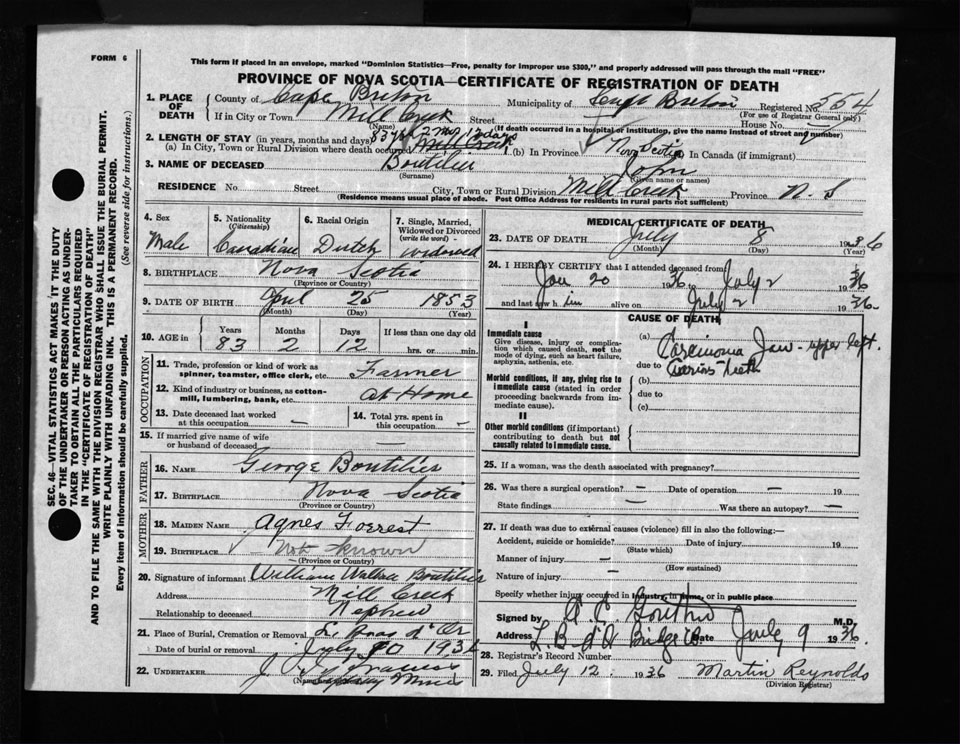 FORM 6
This form if placed in an envelope, marked "Dominion Statistics—Free, penalty for improper use $300," and properly addressed will pass through the mail "FREE"
PROVINCE OF NOVA SCOTIA—CERTIFICATE OF REGISTRATION OF DEATH
1. PLACE OF DEATH County of Cape Breton Municipality of Cape Breton Registered No. 554
(For use of Registrar General only)
If in City or Town Mill Creek Street House No.
(Name) (If death occurred in a hospital or institution, give the name instead of street and number)
2. LENGTH OF STAY (in years, months and days) 83 yrs 2 mos 12 days
(a) In City, Town or Rural Division where death occurred Mill Creek (b) In Province Nova Scotia In Canada (if immigrant)
3. NAME OF DECEASED Boutilier John
(Surname) (Given name or names)
RESIDENCE No. Street City, Town or Rural Division Mill Creek Province N. S
(Residence means usual place of abode. Post Office Address for residents in rural parts not sufficient)
4. Sex 5. Nationality (Citizenship) 6. Racial Origin 7. Single, Married, Widowed or Divorced (write the word)
Male Canadian Dutch widowed
8. BIRTHPLACE Nova Scotia
(Province or Country)
9. DATE OF BIRTH April 25 1853
(Month) (Day) (Year)
10. AGE in Years Months Days If less than one day old
83 2 12 hrs. or min.
OCCUPATION
11. Trade, profession or kind of work as spinner, teamster, office clerk, etc. Farmer
12. Kind of industry or business, as cotton-mill, lumbering, bank, etc. At Home
13. Date deceased last worked at this occupation — 14. Total yrs. spent in this occupation —
15. If married give name of wife or husband of deceased —
FATHER
16. NAME George Boutilier
17. BIRTHPLACE Nova Scotia
(Province or Country)
MOTHER
18. MAIDEN NAME Agnes Forrest
19. BIRTHPLACE Not known
(Province or Country)
20. Signature of informant William Boutilier
Address Mill Creek
Relationship to deceased Nephew
21. Place of Burial, Cremation or Removal Le Bras d'Or
Date of burial or removal July 10 1936
22. UNDERTAKER
Sydney Mines
MEDICAL CERTIFICATE OF DEATH
23. DATE OF DEATH July 8 1936
(Month) (Day) (Year)
24. I HEREBY CERTIFY that I attended deceased from
Jan 20 1936 to July 2 1936
and last saw him alive on July 2 1936.
CAUSE OF DEATH
I
Immediate cause
Give disease, injury or complication which caused death, not the mode of dying, such as heart failure, asphyxia, asthenia, etc.
(a) Carcinoma Jaw - upper left.
due to Carious Teeth
Morbid conditions, if any, giving rise to immediate cause (stated in order proceeding backwards from immediate cause).
(b)
due to
(c)
II
Other morbid conditions (if important) contributing to death but not causally related to immediate cause.
25. If a woman, was the death associated with pregnancy?
26. Was there a surgical operation? — Date of operation — 19
State findings — Was there an autopsy? —
27. If death was due to external causes (violence) fill in also the following:—
Accident, suicide or homicide? Date of injury 19
(State which)
Manner of injury —
(How sustained)
Nature of injury —
Specify whether injury occurred in industry, in home, or in public place
Signed by M.D.
Address Date July 9 1936.
28. Registrar's Record Number
29. Filed July 12 1936 Martin Reynolds
(Division Registrar)
SEC. 46—VITAL STATISTICS ACT MAKES IT THE DUTY
OF THE UNDERTAKER OR PERSON ACTING AS UNDER-
TAKER TO OBTAIN ALL THE PARTICULARS REQUIRED
IN THE "CERTIFICATE OF REGISTRATION OF DEATH"
AND TO FILE THE SAME WITH THE DIVISION REGISTRAR WHO SHALL ISSUE THE BURIAL PERMIT.
WRITE PLAINLY WITH UNFADING INK. THIS IS A PERMANENT RECORD.
Every item of information should be carefully supplied. (See reverse side for instructions.)